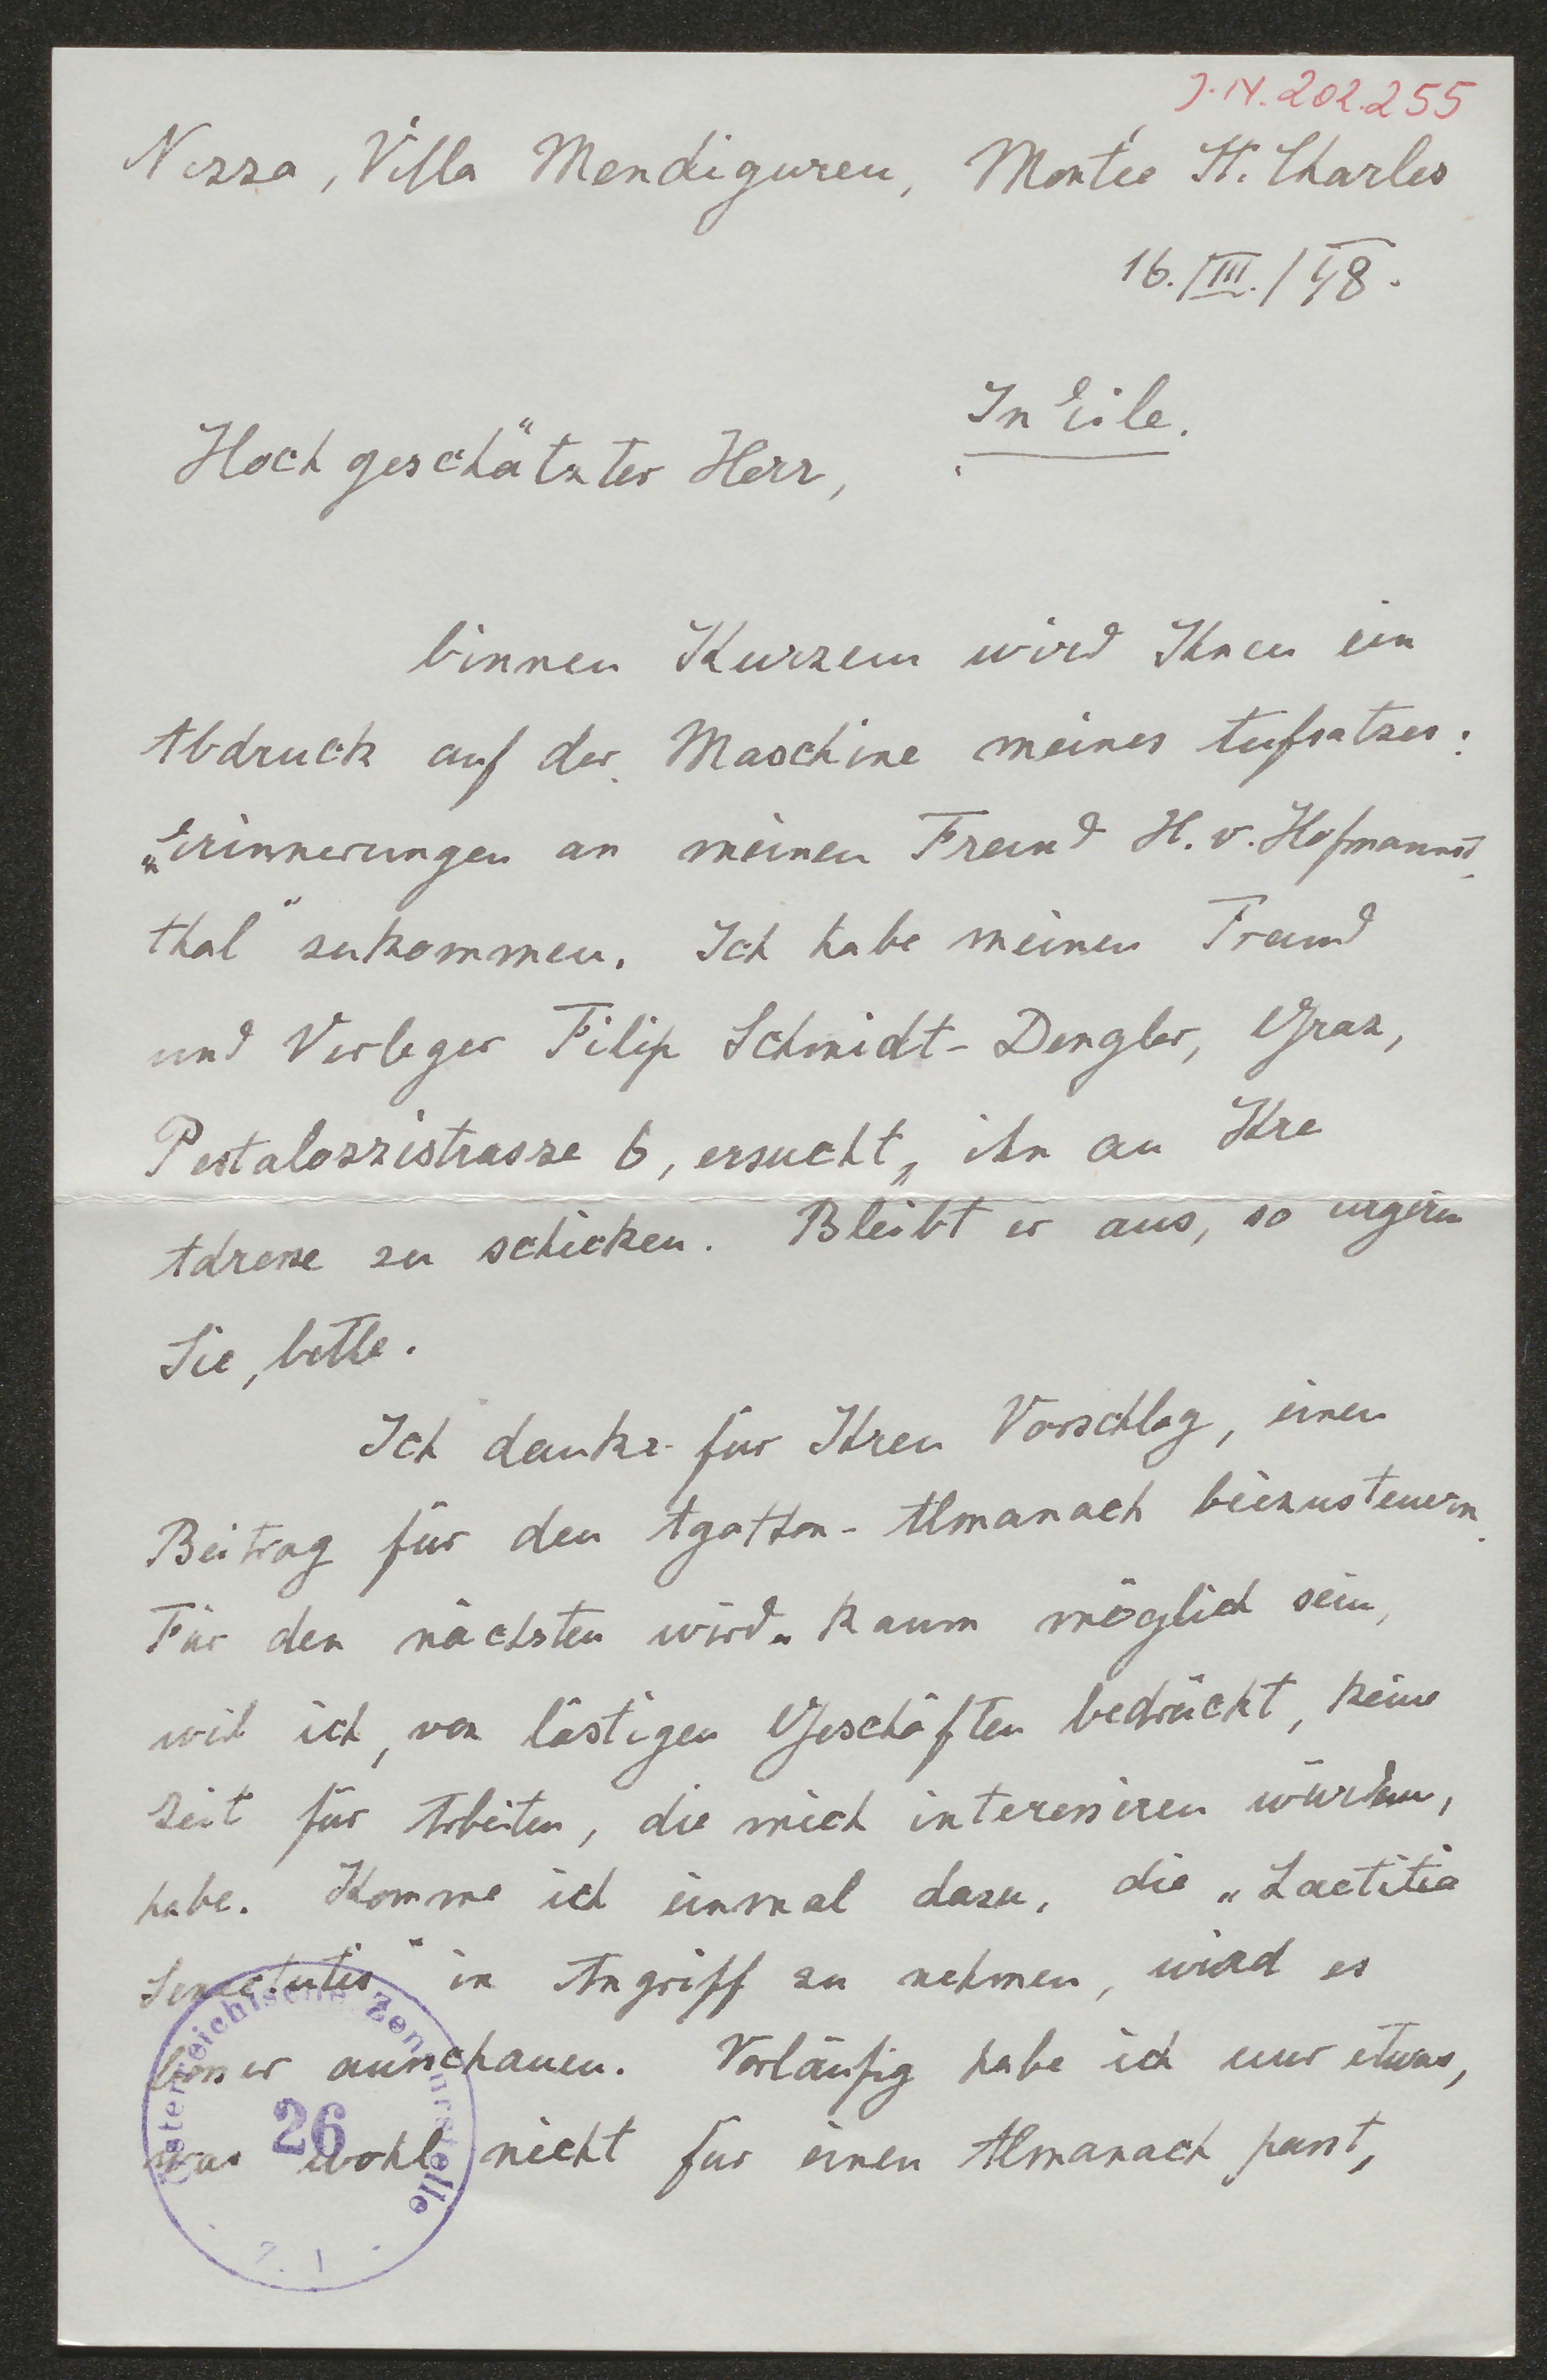 J.N. 202.255
Nizza, Villa Mendiguren, Montée St. Charles
16./III./48.
In Eile.
Hochgeschätzter Herr,
binnen Kurzem wird Ihnen ein
Abdruck auf der Maschine meines Aufsatzes:
„Erinnerungen an meinen Freund H. v. Hofmanns-
thal“ zukommen. Ich habe meinen Freund
und Verleger Filip Schmidt-Dengler, Graz,
Pestalozzistrasse 6, ersucht, ihn an Ihre
Adresse zu schicken. Bleibt er aus, so urgieren
Sie, bitte.
Ich danke für Ihren Vorschlag, einen
Beitrag für den Agathon-Almanach beizusteuern.
Für den nächsten wird's kaum möglich sein,
weil ich, von lästigen Geschäften bedrückt, keine
Zeit für Arbeiten, die mich interessieren würden,
habe. Komme ich einmal dazu, die „Laetitia
Senectutis“ in Angriff zu nehmen, wird es
besser ausschauen. Vorläufig habe ich nur etwas,
was wohl nicht für einen Almanach passt,
Österreichische Zensurstelle
26